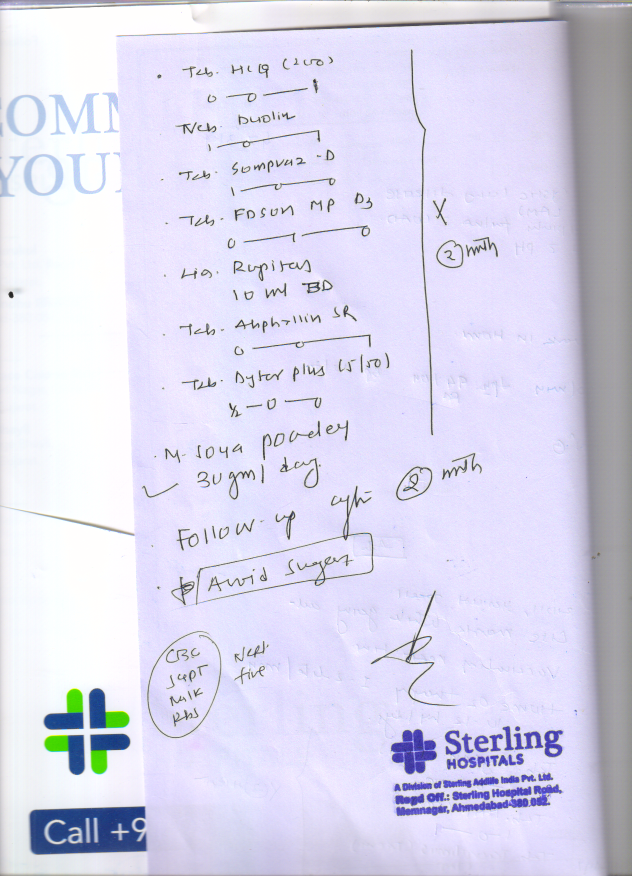 COMM
YOU
Tab. HCQ (200)
0 — 0 — 1
Neb. Duolin
1 — 0 — 1
Tab. Sompraz -D
1 — 0 — 0
Tab. FDSON MP D3
0 — 1 — 0
10 ml BD
SR
0 — 0 — 1
X
② mth
Tab. Dytor plus (5/50)
½ — 0 — 0
M. Soya powder
30 gm / day
Follow-up ② mth
Avoid Sugar
CBC
SGPT
RBS
Next
time
Sterling
HOSPITALS
A Division of Sterling Addlife India Pvt. Ltd.
Regd Off.: Sterling Hospital Road,
Memnagar, Ahmedabad-380 052.
Call +9